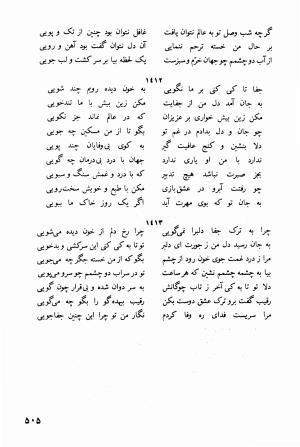 گرچه شب وصل تو به عالم نتوان یافت غافل نتوان بود چنین از تک و پویی
بر حال من خسته ترحم ننمایی آن دل نتوان گفت بود آهن و رویی
از آب دو چشمم چو جهان خرّم و سبزست یک لحظه بیا بر سر کشت و لب جویی
۱۴۱۲
جفا تا کی کنی بر ما نگویی به خون دیده روبم چند شویی
به جان آمد دل من از جفایت مکن زین بیش با ما تندخویی
مکن زین بیش خواری بر عزیزان که در عالم نماند جز نکویی
چو جان و دل بدادم در غم تو بگو تا از من مسکین چه جویی
دلا بنشین و کنج عافیت گیر به کوی بی‌وفایان چند پویی
ندارد با من او یاری ندارد جهان با درد بی‌درمان چه گویی
بجز صبرت نباشد هیچ تدبیر که با درد و غمش سنگ و سبویی
چو رفتت آبرو در عشق‌بازی مکن با طبع و خویش سخت‌رویی
به جان تو که بوی مهرت آید اگر یک روز خاک ما ببویی
۱۴۱۳
چرا به ترک جفا دلبرا نمی‌گویی چرا رخ دلم از خون دیده می‌شویی
به جان رسید دل من ز جورت ای دلبر تو تا به کی کنی این سرکشی و بدخویی
مرا ز درد غمت جوی خون رود از چشم بگو که از من خسته جگر چه می‌جویی
بیا به چشمه چشمم نشین که هر ساعت تو در سراب دو چشمم چو سرو می‌پویی
دلا تو تا به کی آخر ز تاب چوگانش به سر دوان شده و بی‌قرار چون گویی
رقیب گفت برو ترک عشق دوست بکن رقیب بیهده‌گو را بگو چه می‌گویی
مرا سریست فدای ره وفا کردم نگار من تو چرا این چنین جفاجویی
۵۰۵